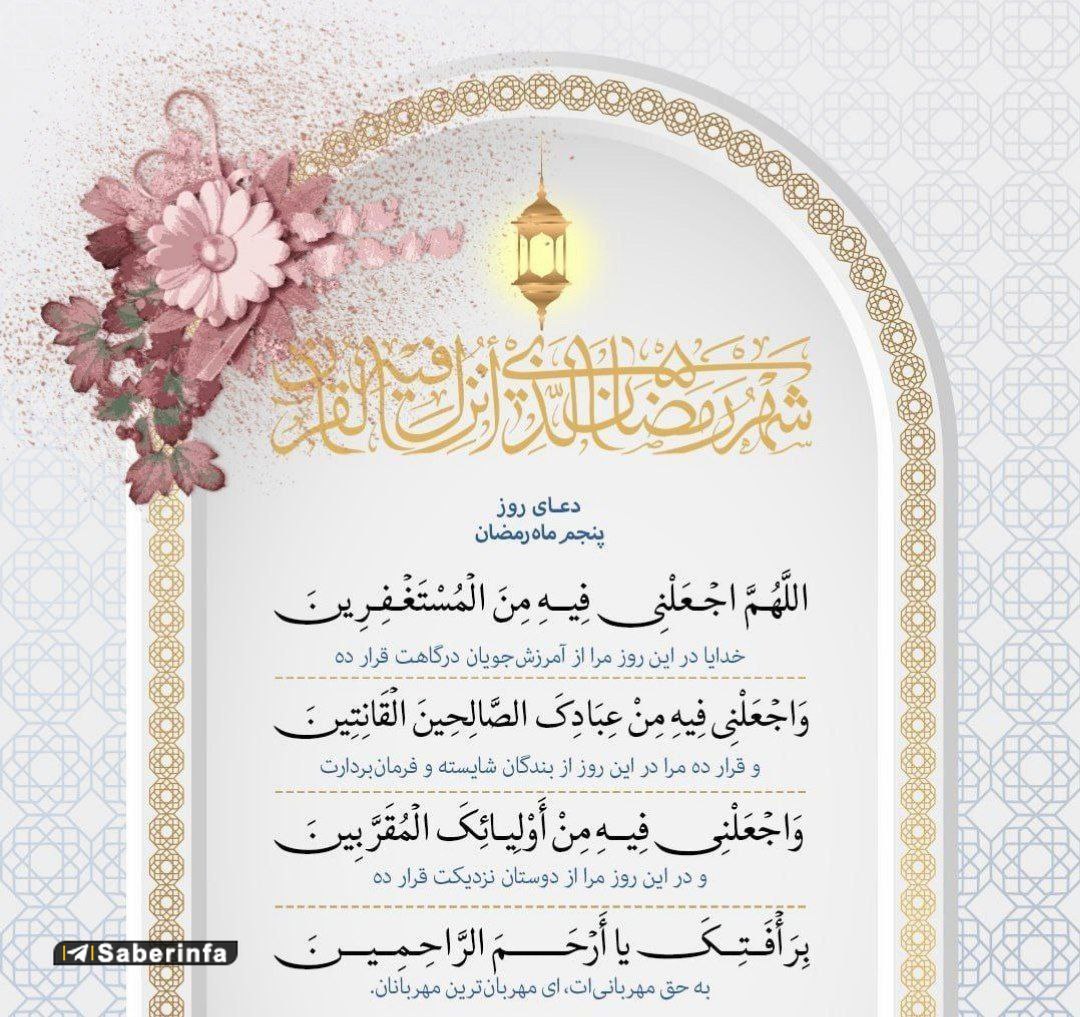 شَهْرُ رَمَضَانَ الَّذِي أُنْزِلَ فِيهِ الْقُرْآنُ
دعای روز
پنجم ماه رمضان
اللَّهُمَّ اجْعَلْنِی فِیهِ مِنَ الْمُسْتَغْفِرِینَ
خدایا در این روز مرا از آمرزش‌جویان درگاهت قرار ده
وَاجْعَلْنِی فِیهِ مِنْ عِبَادِکَ الصَّالِحِینَ الْقَانِتِینَ
و قرار ده مرا در این روز از بندگان شایسته و فرمان‌بردارت
وَاجْعَلْنِی فِیهِ مِنْ أَوْلِیائِکَ الْمُقَرَّبِینَ
و در این روز مرا از دوستان نزدیکت قرار ده
بِرَأْفَتِکَ یا أَرْحَمَ الرَّاحِمِینَ
به حق مهربانی‌ات، ای مهربان‌ترین مهربانان.
Saberinfa